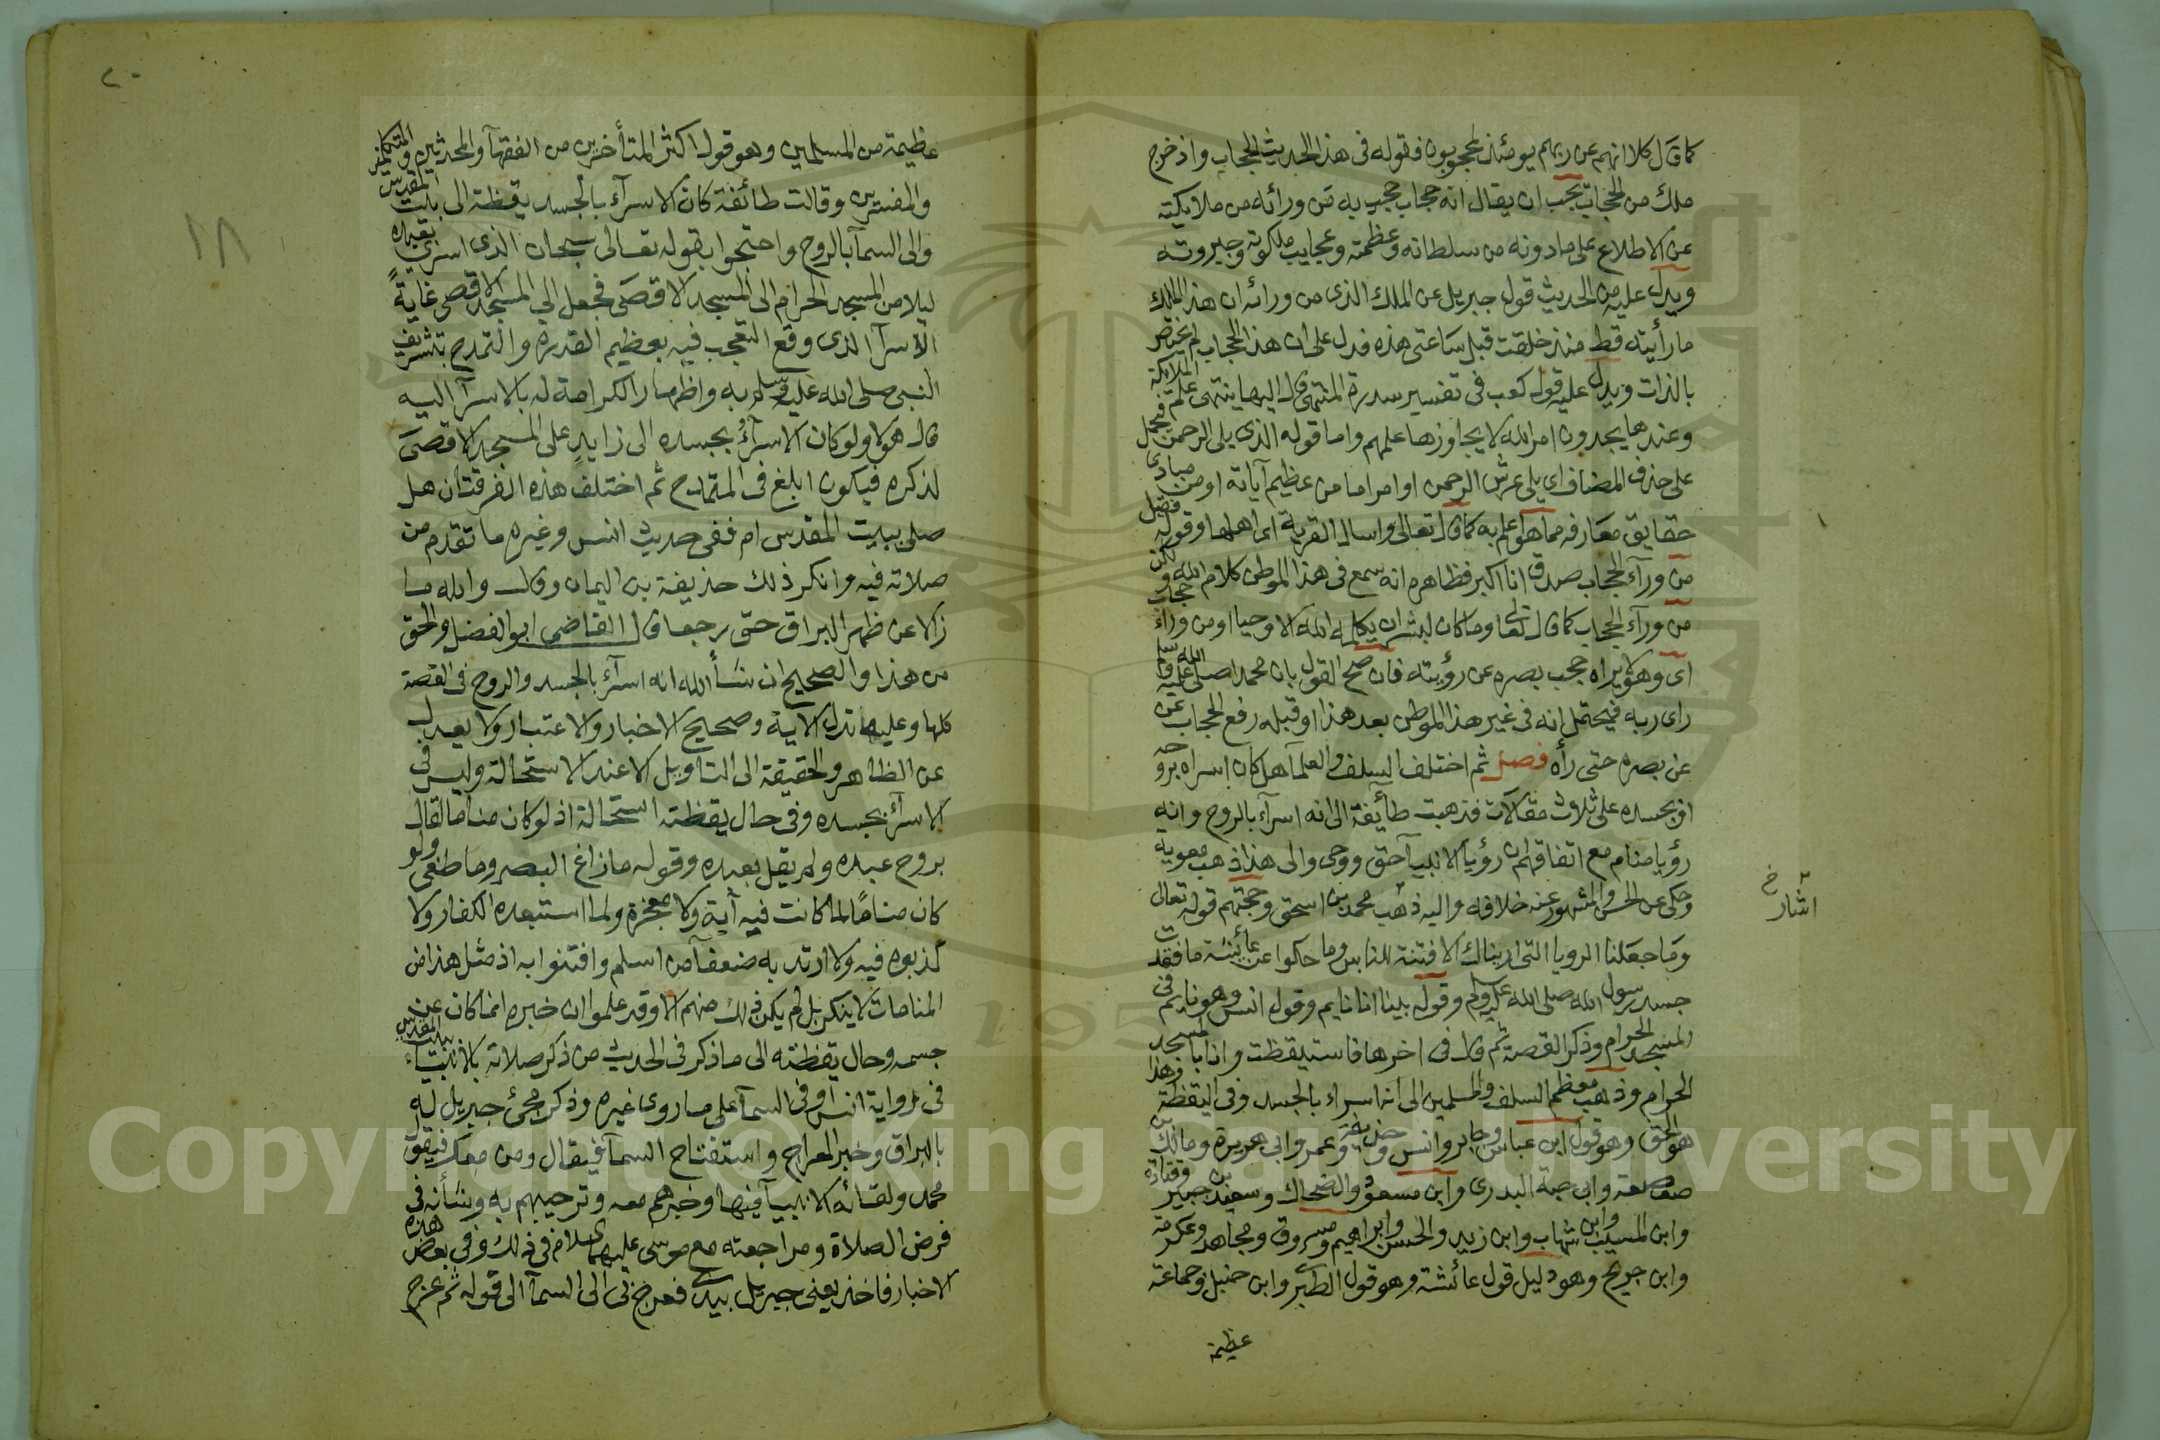 كما قال كلا انهم عن ربهم يومئذ لمحجوبون فقوله في هذا الحديث الحجاب واذ خرج
ملك من الحجاب يجب ان يقال انه حجاب حجب به من ورائه من ملايكته
عن الاطلاع على ما دونه من سلطانه وعظمته وعجايب ملكوته وجبروته
ويدل عليه من الحديث قول جبريل عن الملك الذي من ورائه ان هذا الملك
ما رأيته قط منذ خلقت قبل ساعتي هذه فدل على ان هذا الحجاب لم يختص
بالذات ويدل عليه قول كعب في تفسير سدرة المنتهى قال اليها ينتهي علم الملايكة
وعندها يجدون امر الله لا يجاوزها علمهم واما قوله الذي يلي الرحمن فيحمل
على حذف المضاف اي يلي عرش الرحمن او امرا ما من عظيم آياته او من مبادي
حقايق معارفه مما هو اعلم به كما قال تعالى واسال القرية اي اهلها وقوله فقيل
من ورآء الحجاب صدق انا اكبر فظاهره انه سمع في هذا الموطن كلام الله ولكن
من ورآء الحجاب كما قال تعالى وما كان لبشر ان يكلمه الله الا وحيا او من وراء حجاب
اي وهو لا يراه حجب بصره عن رؤيته فان صح القول بان محمدا صلى الله عليه وسلم
راى ربه فيحتمل انه في غير هذا الموطن بعد هذا او قبله رفع الحجاب عن
عن بصره حتى رأه فصل ثم اختلف السلف والعلمآ هل كان اسراه بروحه
او بجسده على ثلاث مقالات فذهبت طآيفة الى انه اسرآء بالروح وانه
رؤيا منام مع اتفاقهم ان رؤيا الانبيآ حق ووحى والى هذا ذهب معوية
وحكى عن الحسن والمشهور عنه خلافه واليه ذهب محمد بن اسحق وحجتهم قوله تعالى
وما جعلنا الرويا التي اريناك الا فتنة للناس وما حكوا عن عائشة ما فقدت
جسد رسول الله صلى الله عليه وسلم وقوله بينا انا نايم وقول انس وهو نايم في
المسجد الحرام وذكر القصة ثم قال في اخرها فاستيقظت وانا بالمسجد
الحرام وذهب معظم السلف والمسلمين الى انه اسراء بالجسد وفي اليقظة وهذا
هو الحق وهو قول ابن عباس وجابر وانس وحذيفة وعمر وابي هريرة ومالك بن
صعصعة وابي حبة البدري وابن مسعود والضحاك وسعيد بن جبير وقتادة
وابن المسيب وابن شهاب وابن زيد والحسن وابراهيم ومسروق ومجاهد وعكرمة
وابن جريج وهو دليل قول عائشة وهو قول الطبري وابن حنبل وجماعة
عظيمة
خ
اشار
٢٠
١٨
عظيمة من المسلمين وهو قول اكثر المتأخرين من الفقهآ والمحدثين والمتكلمين
والمفسرين وقالت طائفة كان الاسرآء بالجسد يقظة الى بيت المقدس
والى السمآ بالروح واحتجوا بقوله تعالى سبحان الذي اسرى بعبده
ليلا من المسجد الحرام الى المسجد الاقصى فجعل الى المسجد الاقصى غايةً
الاسرآ الذي وقع التعجب فيه بعظيم القدرة والتمدح بتشريف
النبي صلى الله عليه وسلم به واظهار الكرامة له بالاسرآ اليه
قال هولا ولو كان الاسرآء بجسده الى زايد على المسجد الاقصى
لذكره فيكون ابلغ في المتمدح ثم اختلف هذه الفرقتان هل
صلى ببيت المقدس ام ففي حديث انس وغيره ما تقدم من
صلاته فيه وانكر ذلك حذيفة بن اليمان وقال والله ما
زالا عن ظهر البراق حتى رجعا قال القاضي ابو الفضل والحق
من هذا والصحيح ان شأ الله انه اسرآء بالجسد والروح في القصة
كلها وعليها تدل الاية وصحيح الاخبار والاعتبار ولا يعدل
عن الظاهر والحقيقة الى التاويل الا عند الاستحالة وليس في
الاسرآء بجسده وفي حال يقظته استحالة اذ لو كان مناما لقال
بروح عبده ولم يقل بعبده وقوله ما زاغ البصر وما طغى ولو
كان مناما لما كانت فيه آية ولا معجزة ولما استبعده الكفار ولا
كذبوه فيه ولا ارتد به ضعفآ من اسلم وافتتنوا به اذ مثل هذا من
المنامات لا ينكر بل لم يكن ذلك منهم الا وقد علموا ان خبره انما كان عن
جسمه وحال يقظته الى ما ذكر في الحديث من ذكر صلاته بالانبياء ببيت المقدس
في رواية انس او في السمآ على ما روى غيره وذكر مجئ جبريل له
بالبراق وخبر المعراج واستفتاح السمآ فيقال ومن معك فيقول
محمد ولقائه الانبيآ فيها وخبرهم معه وترحيبهم به وشأنه في
فرض الصلاة ومراجعته مع موسى عليهما السلام في ذلك وفي بعض هذه
الاخبار فاخذ يعني جبريل بيدي فعرج بي الى السمآ الى قوله ثم عرج
Copyright © King Saud University